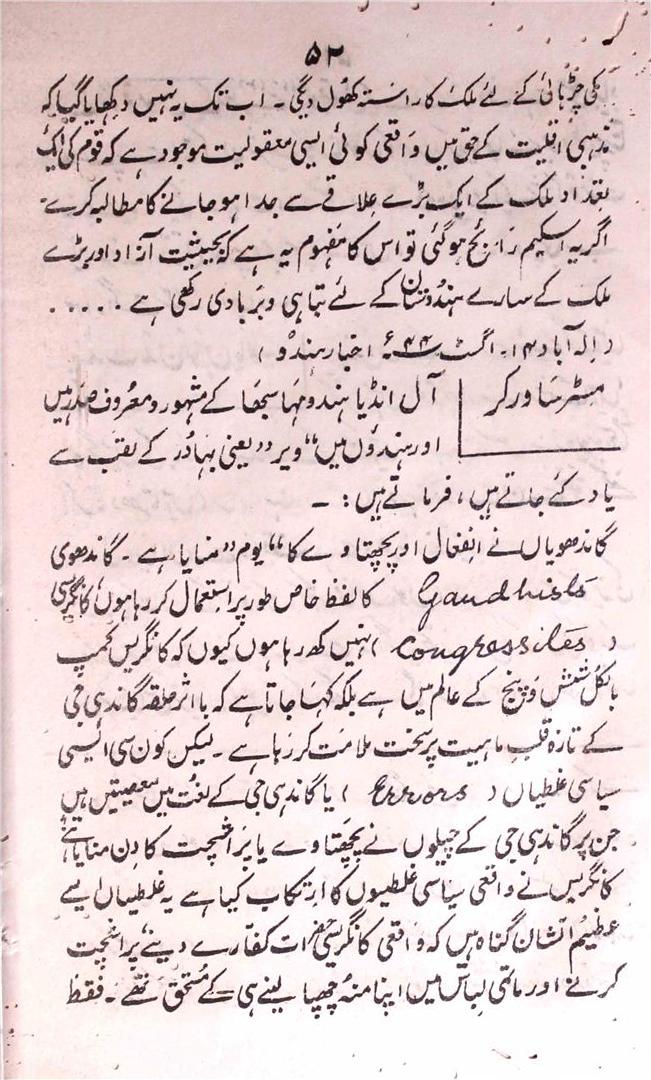 ۵۲
کی چڑہائی کے لئے ملک کا راستہ کھول دیگی ۔ اب تک یہ نہیں دکھایا گیا کہ
مذہبی اقلیت کے حق میں واقعی کوئی ایسی معقولیت موجود ہے کہ قوم کی ایک
تعداد ملک کے ایک بڑے علاقے سے جدا ہو جانے کا مطالبہ کرے۔
اگر یہ اسکیم رائج ہو گئی تو اس کا مفہوم یہ ہے کہ بحیثیت آزاد اور بڑے
ملک کے سارے ہندوستان کے لئے تباہی و بربادی رکھی ہے . . . . .
( الہ آباد ۱۴۔ اگست ۴۴ء اخبار ہندو )
مسٹر ساورکر
آل انڈیا ہندو مہا سبھا کے مشہور و معروف صدر ہیں
اور ہندوؤں میں “ ویر ” یعنی بہادر کے لقب سے
یاد کئے جاتے ہیں ، فرماتے ہیں : ۔
گاندھویاں نے انفعال اور پچھتاوے کا “ یوم ” منایا ہے ۔ گاندھوی
Gandhists کا لفظ خاص طور پر استعمال کر رہا ہوں کانگرسی
( Congressites ) نہیں کہہ رہا ہوں کیوں کہ کانگریس کیمپ
بالکل شش و پنج کے عالم میں ہے بلکہ کہا جاتا ہے کہ با اثر حلقہ گاندہی جی
کے تازہ قلب ماہیت پر سخت ملامت کر رہا ہے ۔ لیکن کون سی ایسی
سیاسی غلطیاں ( Errors ) یا گاندہی جی کے لغت میں معصیتیں ہیں
جن پر گاندہی جی کے چیلوں نے پچھتاوے یا پرائشچت کا دن منایا ہے
کانگریس نے واقعی سیاسی غلطیوں کا ارتکاب کیا ہے یہ غلطیاں ایسے
عظیم الشان گناہ ہیں کہ واقعی کانگریسی حضرات کفارے دینے ، پرائشچت
کرنے اور ماتمی لباس میں اپنا منہ چھپا لینے ہی کے مستحق تھے ۔ فقط